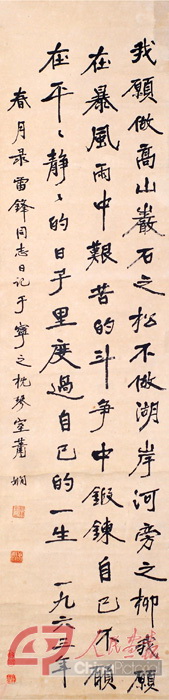 我願做高山巖石之松不做湖岸河旁之柳我願
在暴風雨中艱苦的斗争中鍛鍊自己不願
在平、静、的日子里度過自己的一生 一九六三年
春月录雷鋒同志日记于寧之枕琴室蕭娴
人民画报
China Pictorial